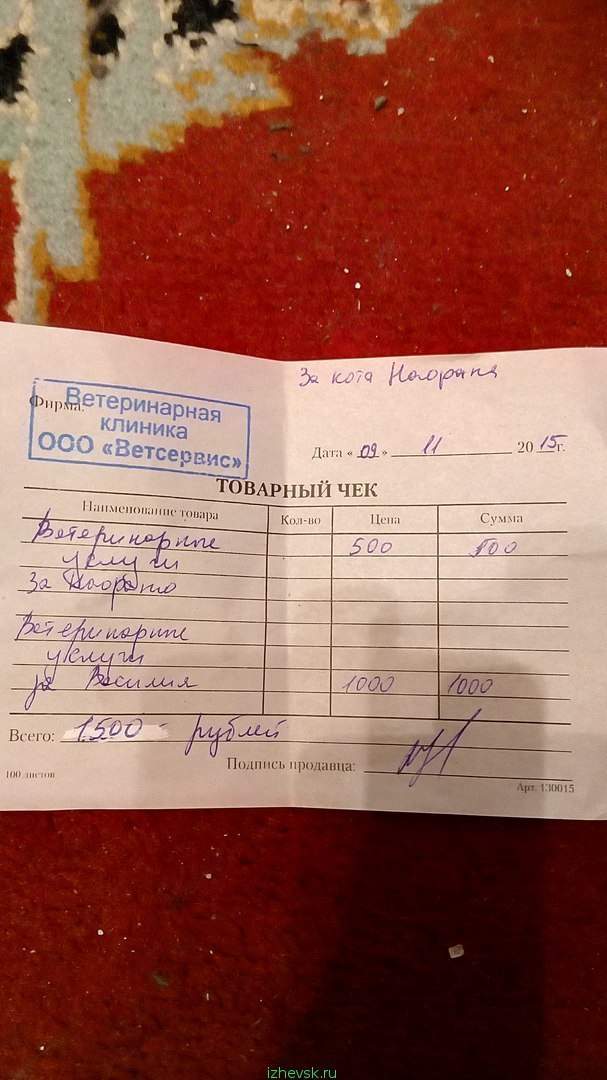 За кота
Фирма:
Ветеринарная
клиника
ООО «Ветсервис»
Дата « 09 » 11 2015 г.
ТОВАРНЫЙ ЧЕК
Наименование товара Кол-во Цена Сумма
Ветеринарные 500 500
услуги
За
Ветеринарные
услуги
за Василия 1000 1000
Всего: 1500 - рублей
Подпись продавца:
100 листов
Арт. 130015
izhevsk.ru